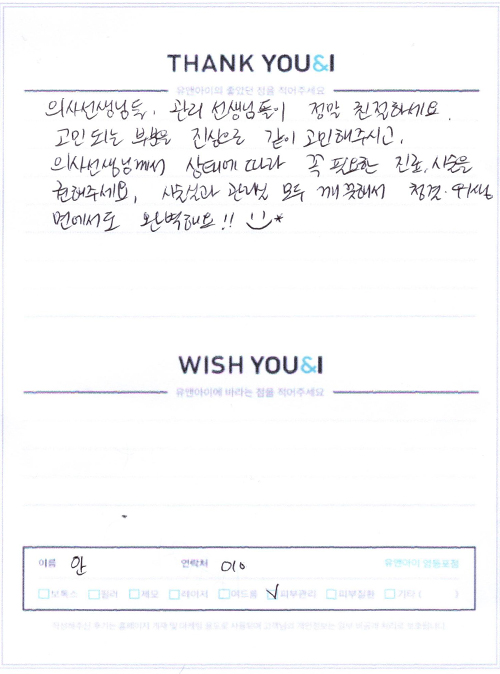 THANK YOU&I
유앤아이의 좋았던 점을 적어주세요
의사선생님들, 관리 선생님들이 정말 친절하세요.
고민 되는 부분을 진심으로 같이 고민해주시고,
의사선생님께서 상태에 따라 꼭 필요한 진료, 시술을
권해주세요, 시술실과 관리실 모두 깨끗해서 청결·위생
면에서도 완벽해요!!
WISH YOU&I
유앤아이에 바라는 점을 적어주세요
이름 안 연락처 010 유앤아이 영등포점
보톡스 필러 제모 레이저 여드름 피부관리 피부질환 기타 ( )